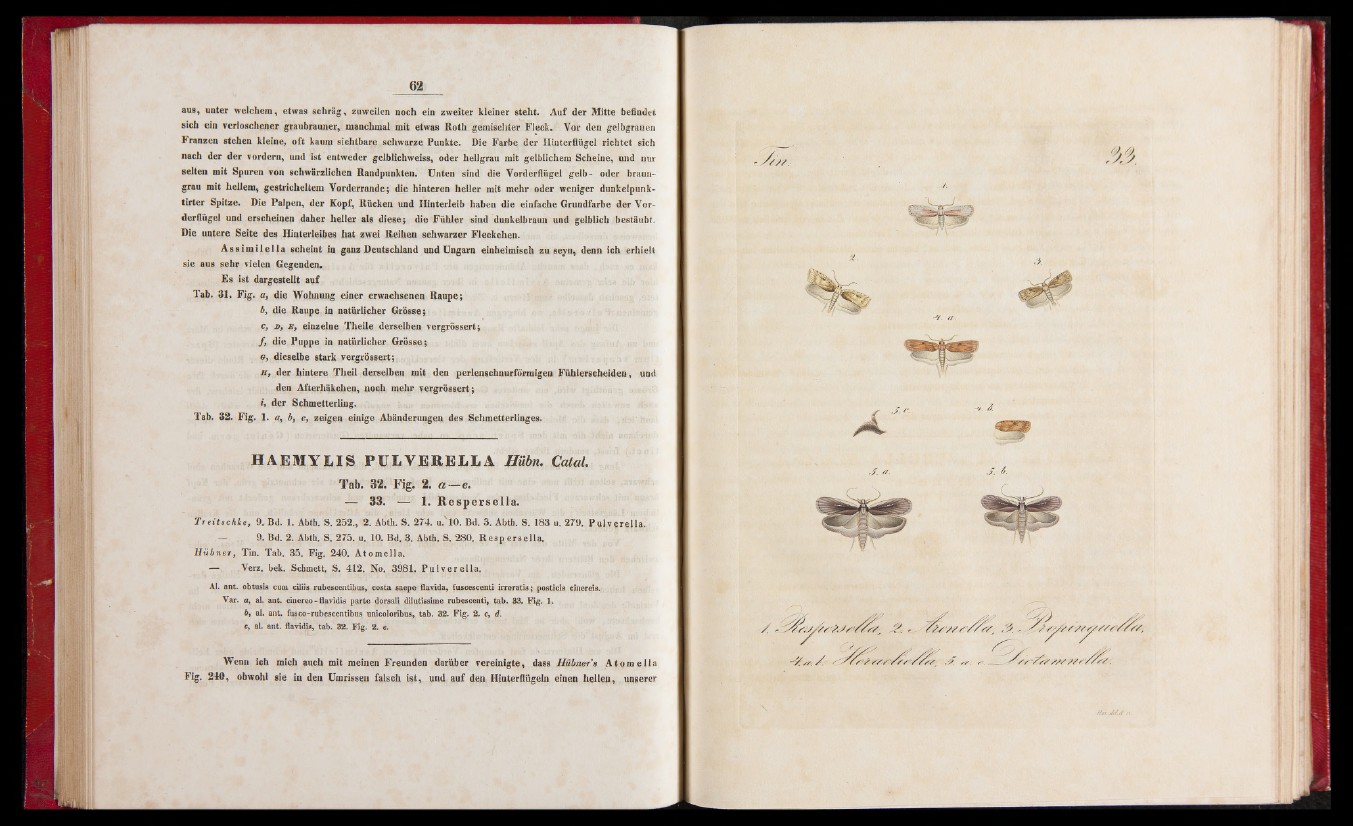 62
aus, unter welchem, etwas schräg, zuweilen noch ein zweiter kleiner steht. Auf der Mitte befindet
sich ein verloschener graubrauner, manchmal mit etwas Roth gemischter Fleck. Vor den gelbgrauen
Franzen stehen kleine, oft kaum sichtbare schwarze Punkte. Die Farbe der Hinterflügel richtet sich
nach der der vordern, und ist entweder gelblichweiss, oder hellgrau mit gelblichem Scheine, und nur
selten mit Spuren von schwärzlichen Randpunkten. Unten sind die Vorderflügel gelb- oder braun-
grau mit hellem, gestricheltem Vorderrande; die hinteren heller mit mehr oder weniger dunkelpunk-
tirter Spitze. Die Palpen, der Kopf, Rücken und Hinterleib haben die einfache Grundfarbe der Vor-
derflügel und erscheinen daher heller als diese; die Fühler sind dunkelbraun und gelblich bestäubt.
Die untere Seite des Hinterleibes hat zwei Reihen schwarzer Fleckchen.
Assimilella scheint in ganz Deutschland und Ungarn einheimisch zu seyn, denn ich erhielt
sie aus sehr vielen Gegenden.
Es ist dargestellt auf
Tab. 31. Fig. a, die Wohnung einer erwachsenen Raupe;
b, die Raupe in natürlicher Grösse;
C, D, E, einzelne Theile derselben vergrössert;
f, die Puppe in natürlicher Grösse;
G, dieselbe stark vergrössert;
H, der hintere Theil derselben mit den perlenschnurförmigen Fühlerscheiden, und
den Afterhäkchen, noch mehr vergrössert;
i, der Schmetterling.
Tab. 32. Fig. 1. a, b, c, zeigen einige Abänderungen des Schmetterlinges.
HAEMYLIS PULVERELLA Hübn. Catal.
Tab. 32. Fig. 2. a—e.
— 33. — 1. Respersella.
Treitschke, 9. Bd. 1. Abth. S. 252., 2. Abth. S. 274. u. 10. Bd. 3. Abth. S. 183 u. 279. Pulverella.
— 9. Bd. 2. Abth. S. 275. u. 10. Bd. 3. Abth. S. 280. Respersella.
Hübner, Tin. Tab. 35. Fig. 240. Atomella.
— Verz. bek. Schmett. S. 412. No. 3981. Pulverella.
Al. ant. obtusis cum ciliis rubescentibus, costa saepe flavida, fuscescenti irroratis; posticis cinereis.
Var. a, al. ant. cinereo-flavidis parte dorsali dilutissime rubescenti, tab. 33. Fig. 1.
b, al. ant. fusco-rubescentibus unicoloribus, tab. 32. Fig. 2. c, d.
c, al. ant. flavidis, tab. 32. Fig. 2. e.
Wenn ich mich auch mit meinen Freunden darüber vereinigte, dass Hübner's Atomella
Fig. 240, obwohl sie in den Umrissen falsch ist, und auf den Hinterflügeln einen hellen, unserer
Tin. 33.
1.
2. 3.
4. a.
5. c. 4. b.
5. a. 5. b.
1. Respersella, 2. Arenella, 3. Propinquella,
4. a. b. Heracliella, 5. a. c. Dictamnella.